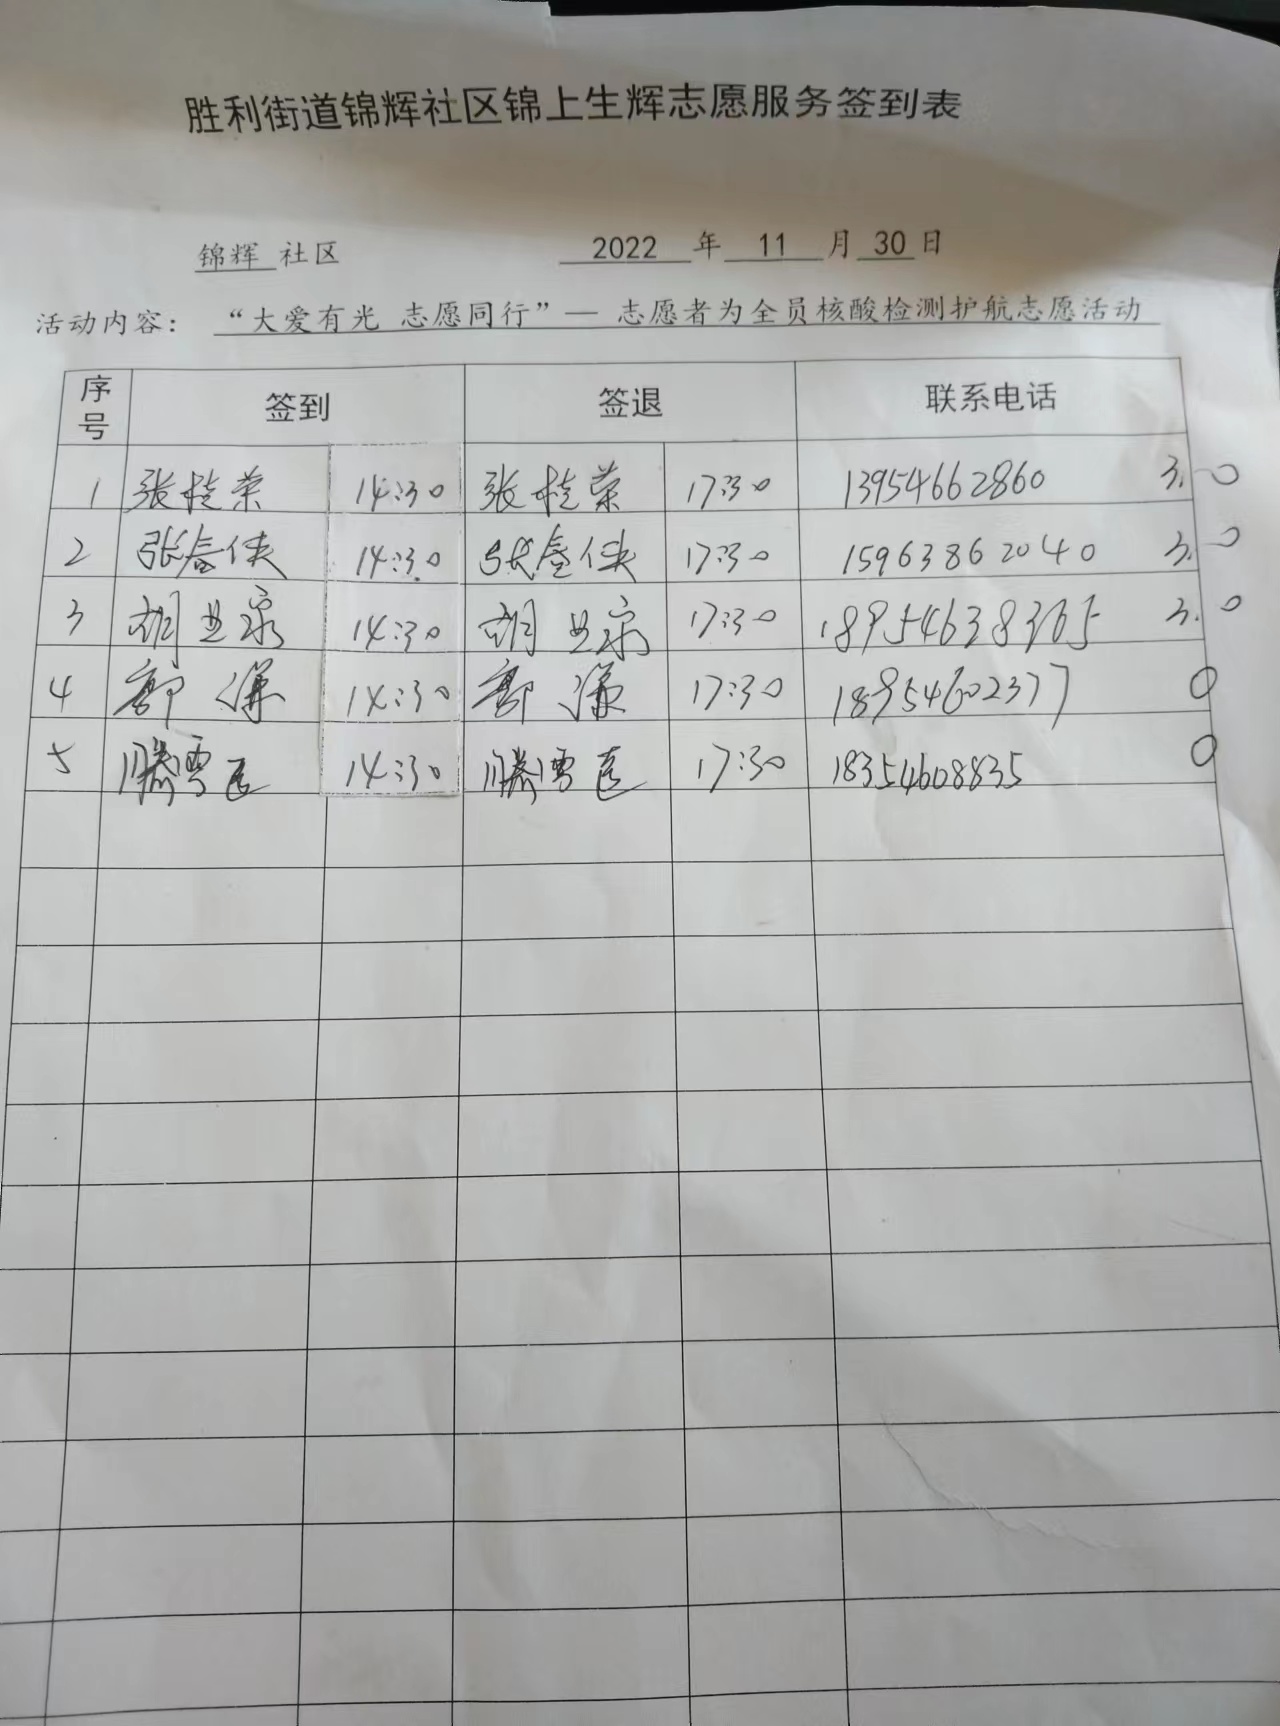 胜利街道锦辉社区锦上生辉志愿服务签到表
锦辉 社区 2022 年 11 月 30 日
活动内容： “大爱有光 志愿同行”— 志愿者为全员核酸检测护航志愿活动
序号 签到 签退 联系电话
1 张桂荣 14:30 张桂荣 17:30 13954662860 3.0
2 张春侠 14:30 张春侠 17:30 15963862040 3.0
3 胡业泉 14:30 胡业泉 17:30 18954638365 3.0
4 14:30 17:30 18954602377 0
5 滕雪 14:30 滕雪 17:30 18354608835 0